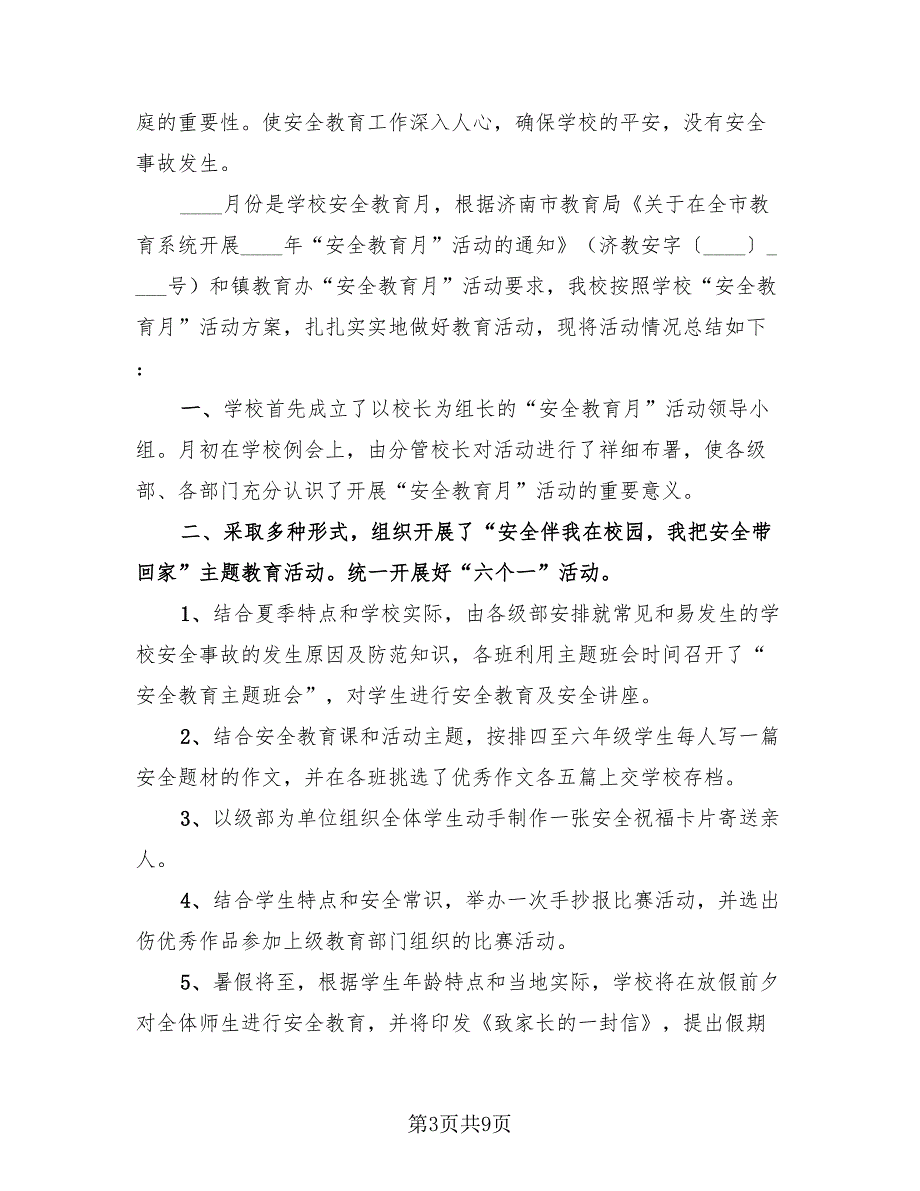 庭的重要性。使安全教育工作深入人心，确保学校的平安，没有安全
事故发生。
____月份是学校安全教育月，根据济南市教育局《关于在全市教
育系统开展____年“安全教育月”活动的通知》（济教安字〔____〕_
___号）和镇教育办“安全教育月”活动要求，我校按照学校“安全教
育月”活动方案，扎扎实实地做好教育活动，现将活动情况总结如下
：
一、学校首先成立了以校长为组长的“安全教育月”活动领导小
组。月初在学校例会上，由分管校长对活动进行了祥细布署，使各级
部、各部门充分认识了开展“安全教育月”活动的重要意义。
二、采取多种形式，组织开展了“安全伴我在校园，我把安全带
回家”主题教育活动。统一开展好“六个一”活动。
1、结合夏季特点和学校实际，由各级部安排就常见和易发生的学
校安全事故的发生原因及防范知识，各班利用主题班会时间召开了“
安全教育主题班会”，对学生进行安全教育及安全讲座。
2、结合安全教育课和活动主题，按排四至六年级学生每人写一篇
安全题材的作文，并在各班挑选了优秀作文各五篇上交学校存档。
3、以级部为单位组织全体学生动手制作一张安全祝福卡片寄送亲
人。
4、结合学生特点和安全常识，举办一次手抄报比赛活动，并选出
伤优秀作品参加上级教育部门组织的比赛活动。
5、暑假将至，根据学生年龄特点和当地实际，学校将在放假前夕
对全体师生进行安全教育，并将印发《致家长的一封信》，提出假期
第3页共9页